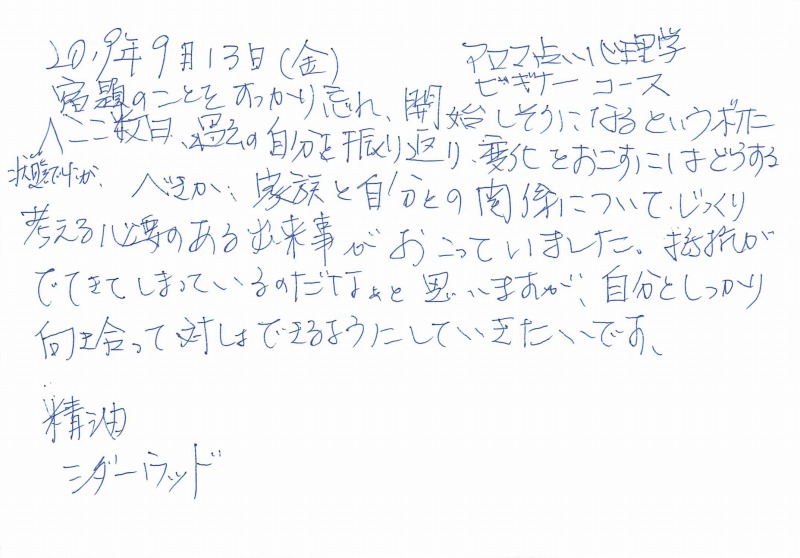 2019年9月13日(金)
アロマ占い心理学
ビギナー コース
宿題のことをすっかり忘れ、開始しそうになるという
ここ数日、過去の自分を振り返り、変化をおこすにはどうする
状態でしたが、
べきか、家族と自分との関係について、じっくり
考える必要のある出来事がおこっていました。抵抗が
でてきてしまっているのだなぁと思いますが、自分としっかり
向き合って対しょできるようにしていきたいです、
精油
シダーウッド